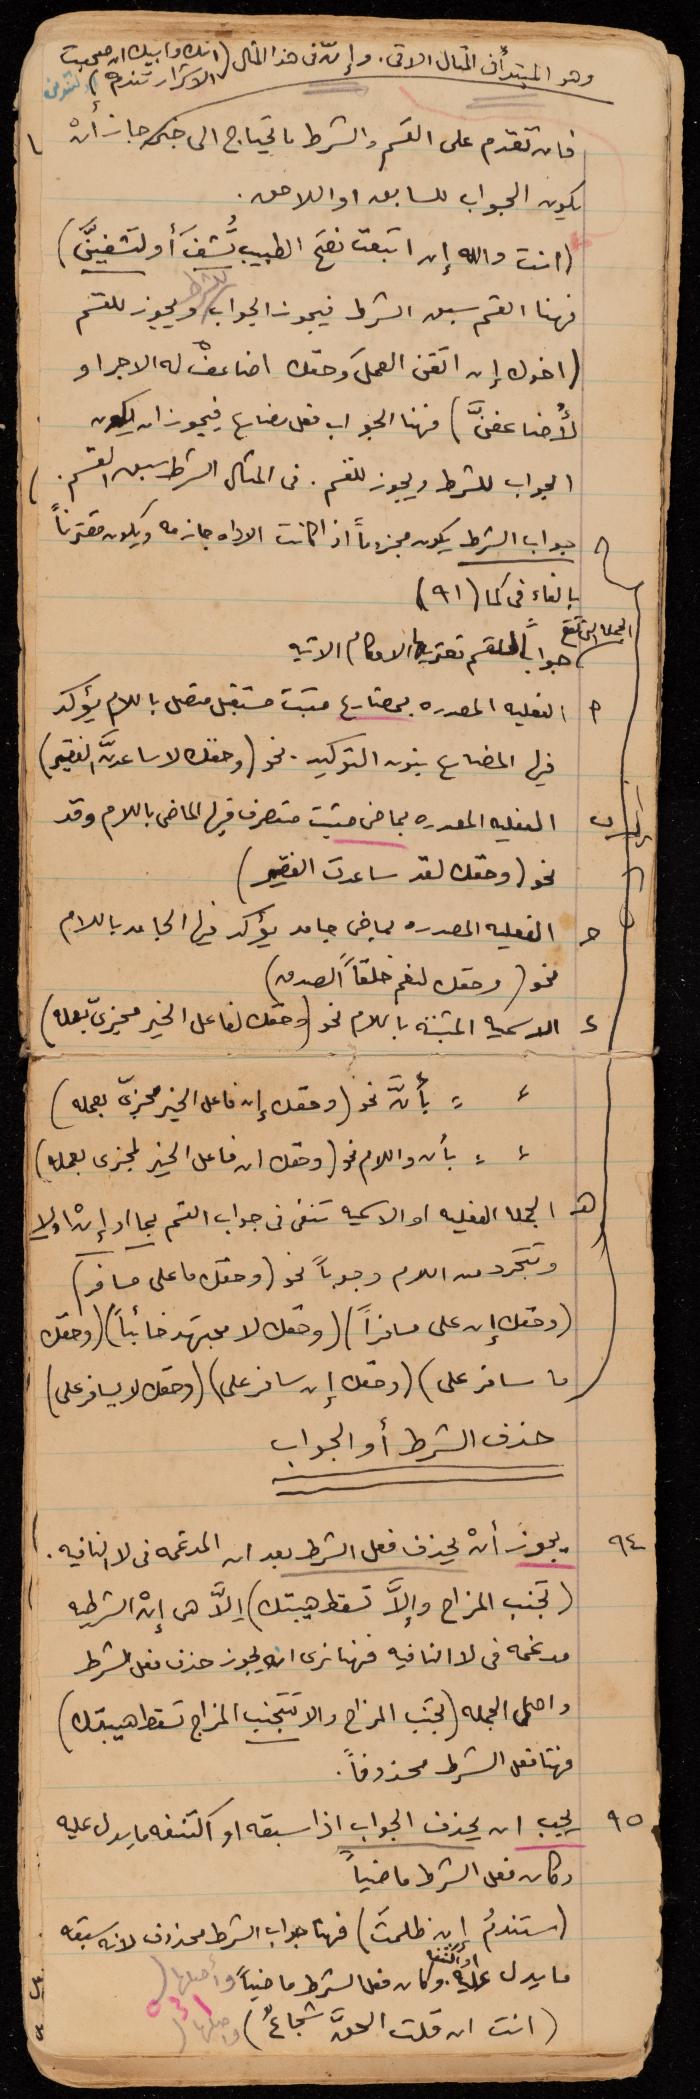 وهو المبتدأ في المثال الاتى. وإنّ فى هذا المثال (انك وابيك ان صحبت
الاشرار تندم)
فان تقدم على القسم والشرط ما يحتاج الى خبر جاز أنْ
يكون الجواب للسابق او اللاحق.
(انت والله إن اتبعت نصح الطبيب تُشفَ أو لتشفينَّ)
فهنا القسم سبق الشرط فيجوز الجواب للشرط ويجوز للقسم
(اخوك إن اتقن العمل وحقك اضاعفْ له الاجر او
لأُضاعفنَّ) فهنا الجواب فعل مضارع فيجوز ان يكون
الجواب للشرط ويجوز للقسم. فى المثال الشرط سبق القسم.
جواب الشرط يكون مجزوماً اذا كانت الاداه جازمه ويكون مقترناً
بالفاء فى كما (٩١)
الجملة التى تقع
جواباً للقسم تعتريها الاحكام الاتيه
ا الفعليه المصدره بمضارع مثبت مستقبل متصل باللام يؤكد
فيها المضارع بنون التوكيد. نحو (وحقك لاساعدنَّ الفقير)
ب الفعليه المصدره بماضى مثبت متصرف فيها الماضى باللام وقد
نحو (وحقك لقد ساعدت الفقير)
ج الفعليه المصدره بماضى جامد يؤكد فيها الجامد باللام
نحو (وحقك لنعم خلقاً الصدق)
ء الاسميه المثبته باللام نحو (وحقك لفاعل الخير مجزىّ بعمله)
〃 〃 بأنَّ نحو (وحقك إن فاعل الخير مجزىّ بعمله)
〃 〃 بأن واللام نحو (وحقك ان فاعل الخير لمجزى بعمله)
هـ الجمله الفعليه او الاسميه تنفى فى جواب القسم بما او إنْ او لا
وتتجرد من اللام وجوباً نحو (وحقك ما على مسافر)
(وحقك إن على مسافراً) (وحقك لا مجتهد خائباً) (وحقك
ما سافر على) (وحقك إن سافر على) (وحقك لا يسافر على)
حذف الشرط أو الجواب
٩٤ يجوز أنْ يحذف فعل الشرط بعد ان المدغمه فى لا النافيه.
(تجنب المزاح وإلاَّ تسقط هيبتك) إلاَّ هى إنْ الشرطيه
مدغمه فى لا النافيه فهنا نرى انه يجوز حذف فعل الشرط
واصل الجمله (تجنب المزاح والا تتجنب المزاح تسقط هيبتك)
فهنا فعل الشرط محذوفاً.
٩٥ يجب ان يحذف الجواب اذا سبقه او اكتنفه ما يدل عليه
وكان فعل الشرط ماضياً
(ستندمُ إن ظلمتَ) فهنا جواب الشرط محذوف لانه سبقه
او اكتنفه
ما يدل عليه وكان فعل الشرط ماضياً وأصلها (
(انت ان قلت الحقَّ شجاعٌ) واصلها (